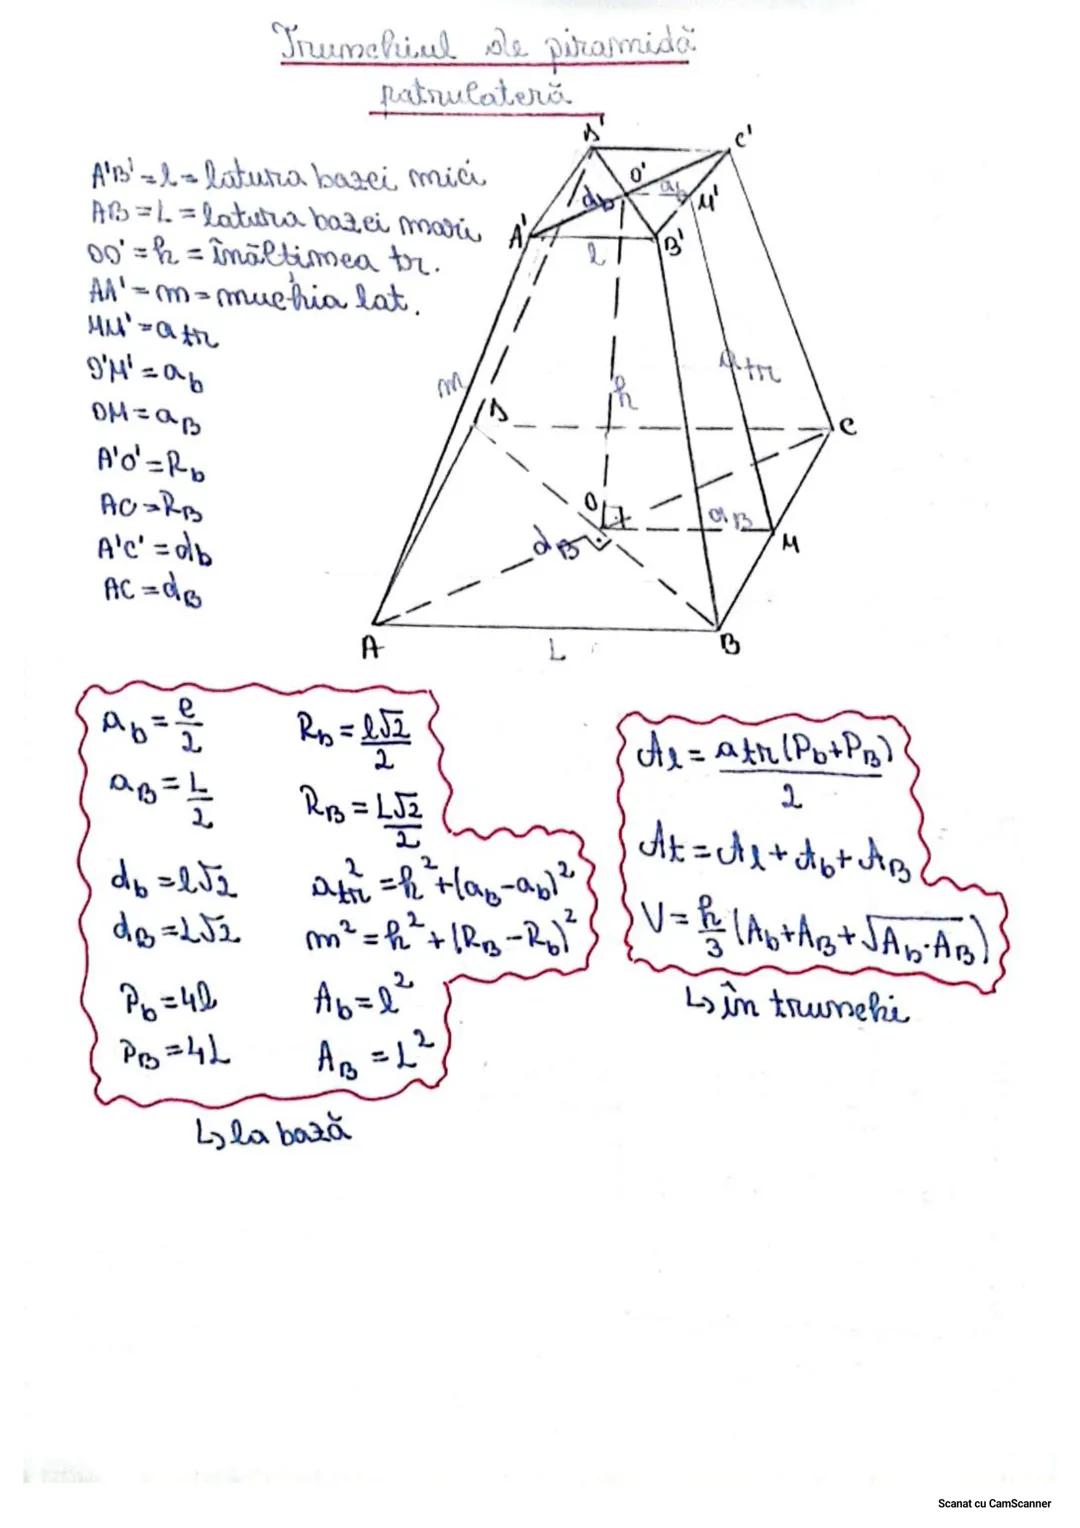 Trunchiul de piramidă
patrulateră
A'B' = l = latura bazei mici
AB = L = latura bazei mari
OO' = h = înălțimea tr.
AA' = m = muchia lat.
MM' = a tr
O'M' = ab
OM = aB
A'O' = Rb
AO = RB
A'C' = db
AC = dB
D'
C'
O'
db
ab
M'
A'
l
B'
m
h
atr
D
C
O
aB
dB
M
A
L
B
ab = l/2
Rb = l√2/2
aB = L/2
RB = L√2/2
db = l√2
atr² = h² + (aB - ab)²
dB = L√2
m² = h² + (RB - Rb)²
Pb = 4l
Ab = l²
PB = 4L
AB = L²
↳ la bază
Al = atr(Pb + PB)/2
At = Al + Ab + AB
V = h/3 (Ab + AB + √Ab·AB)
↳ în trunchi
Scanat cu CamScanner